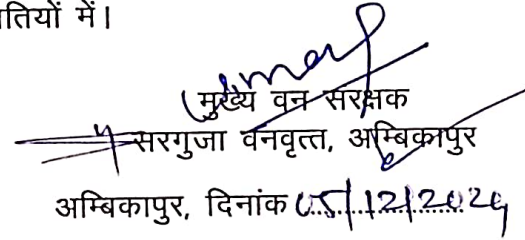 तियों में।
मुख्य वन सरक्षक
सरगुजा वनवृत्त, अम्बिकापुर
अम्बिकापुर, दिनांक 05/12/2024